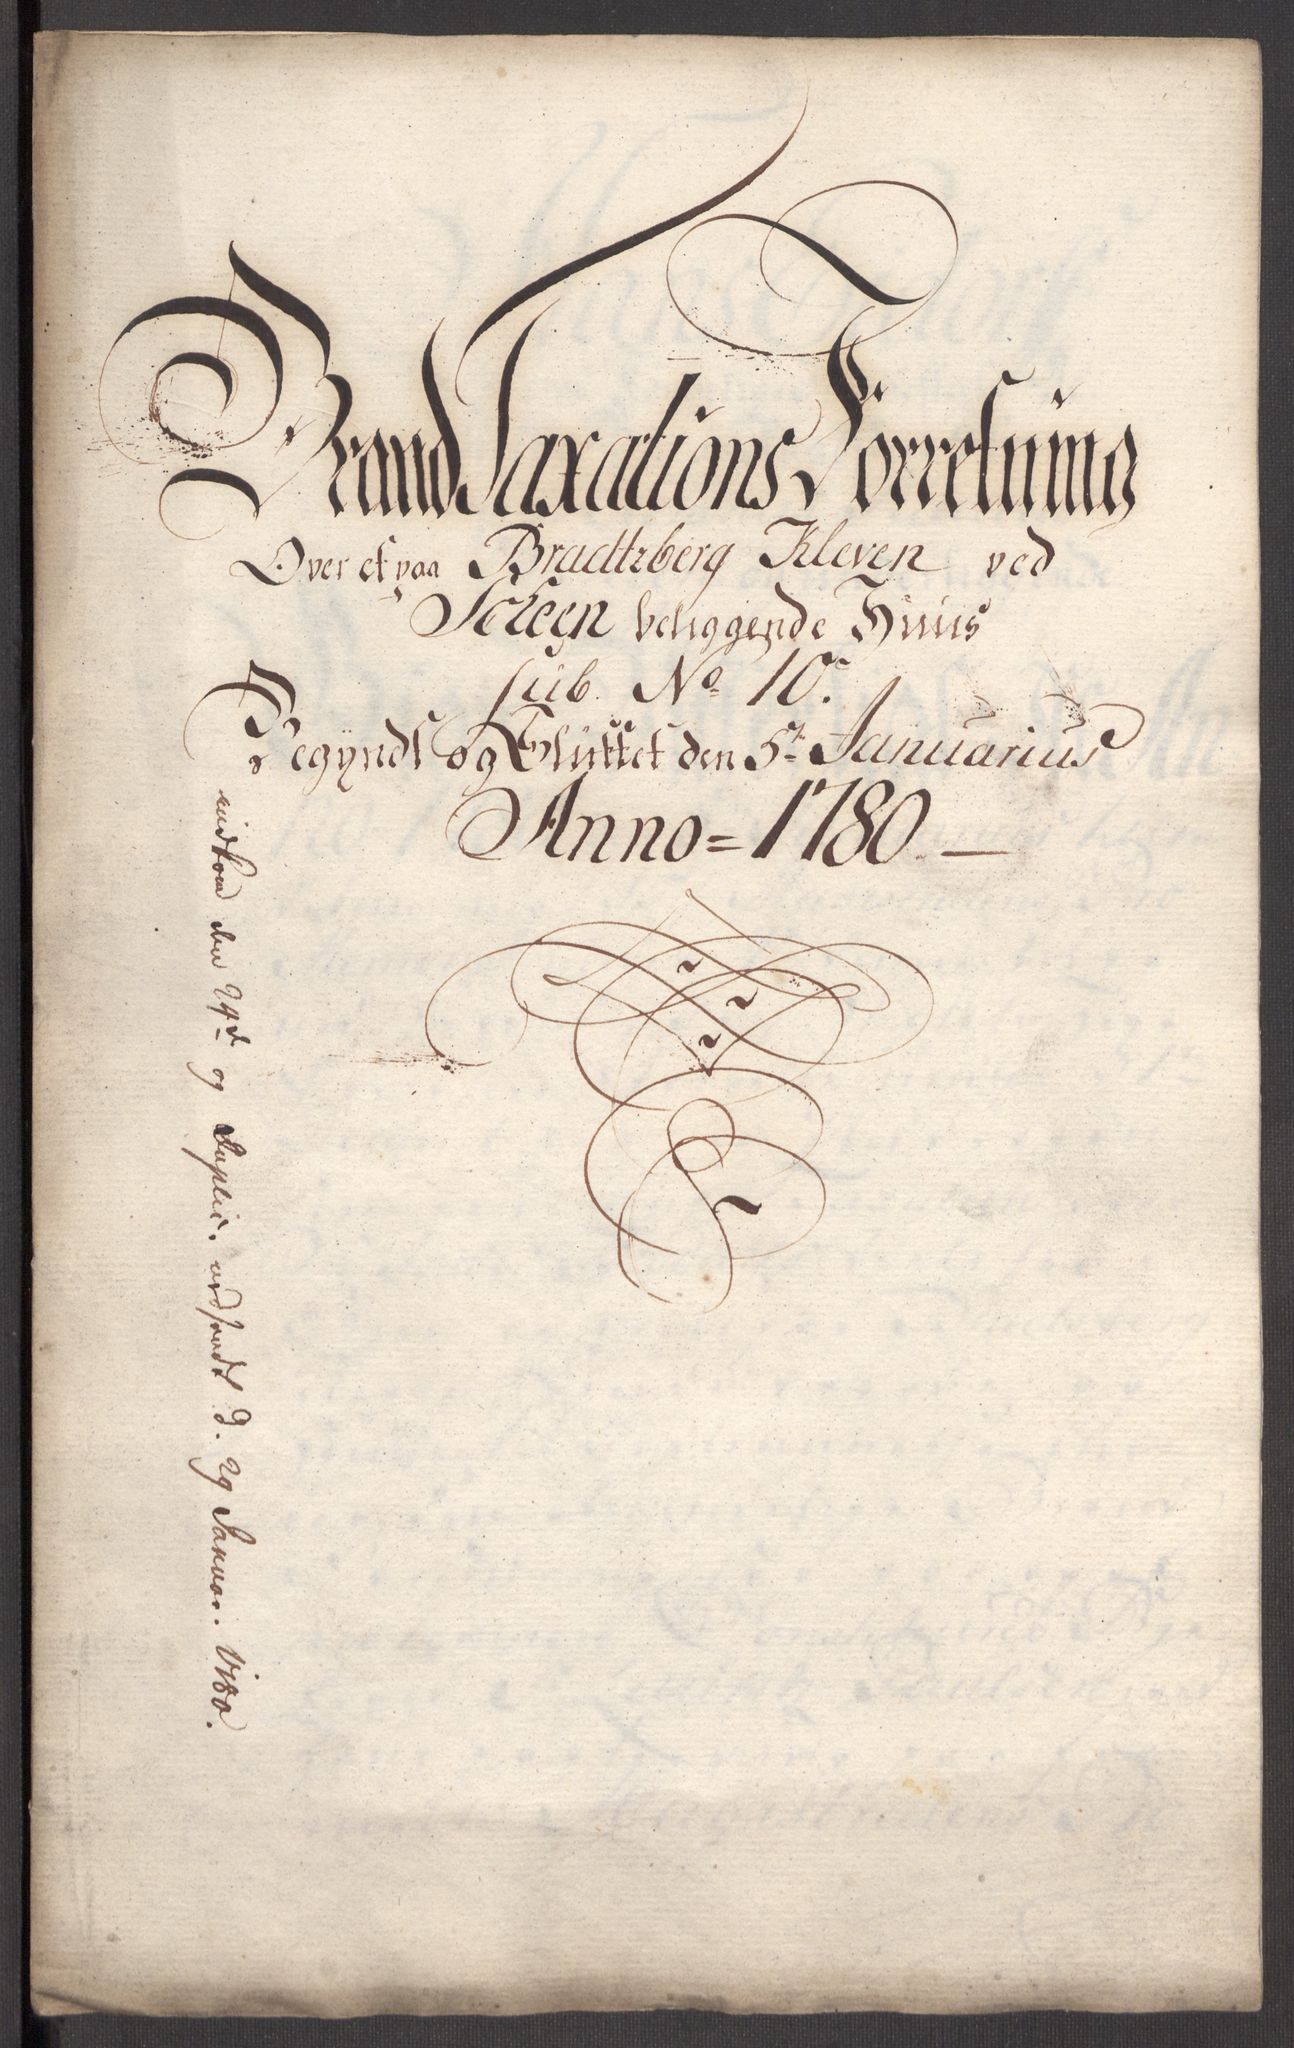 Brand Taxations Forretning
Over et paa Bradtzberg Kleven ved
Scheen beliggende Huus
sub No 10.
Begyndt og Sluttet den 5te Januarius
Anno = 1780.
indkom den 24de og Duplic. udsendt d. 29 Januar. 1780.